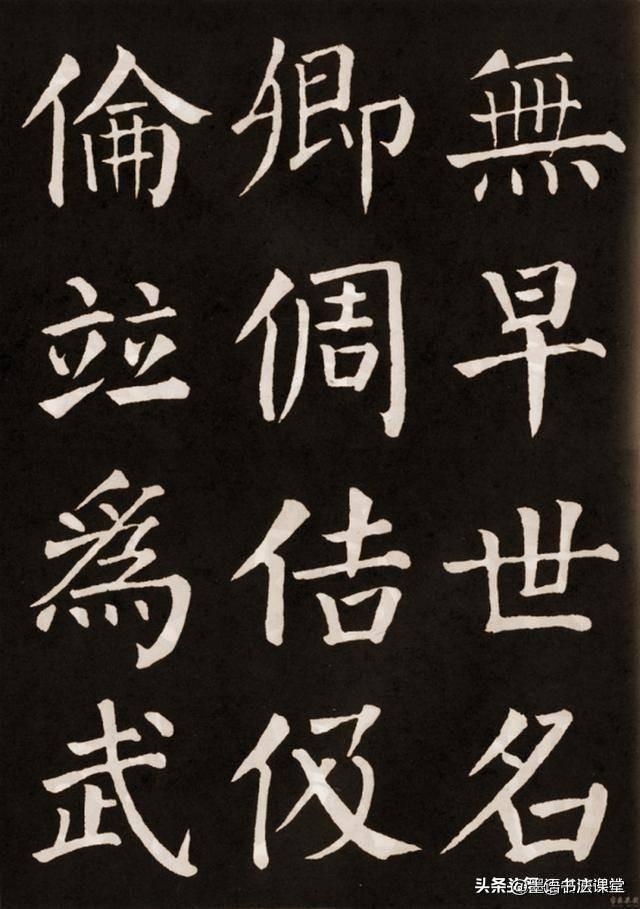 無早世名
卿倜佶伋
倫竝爲武
头条 @墨语书法课堂